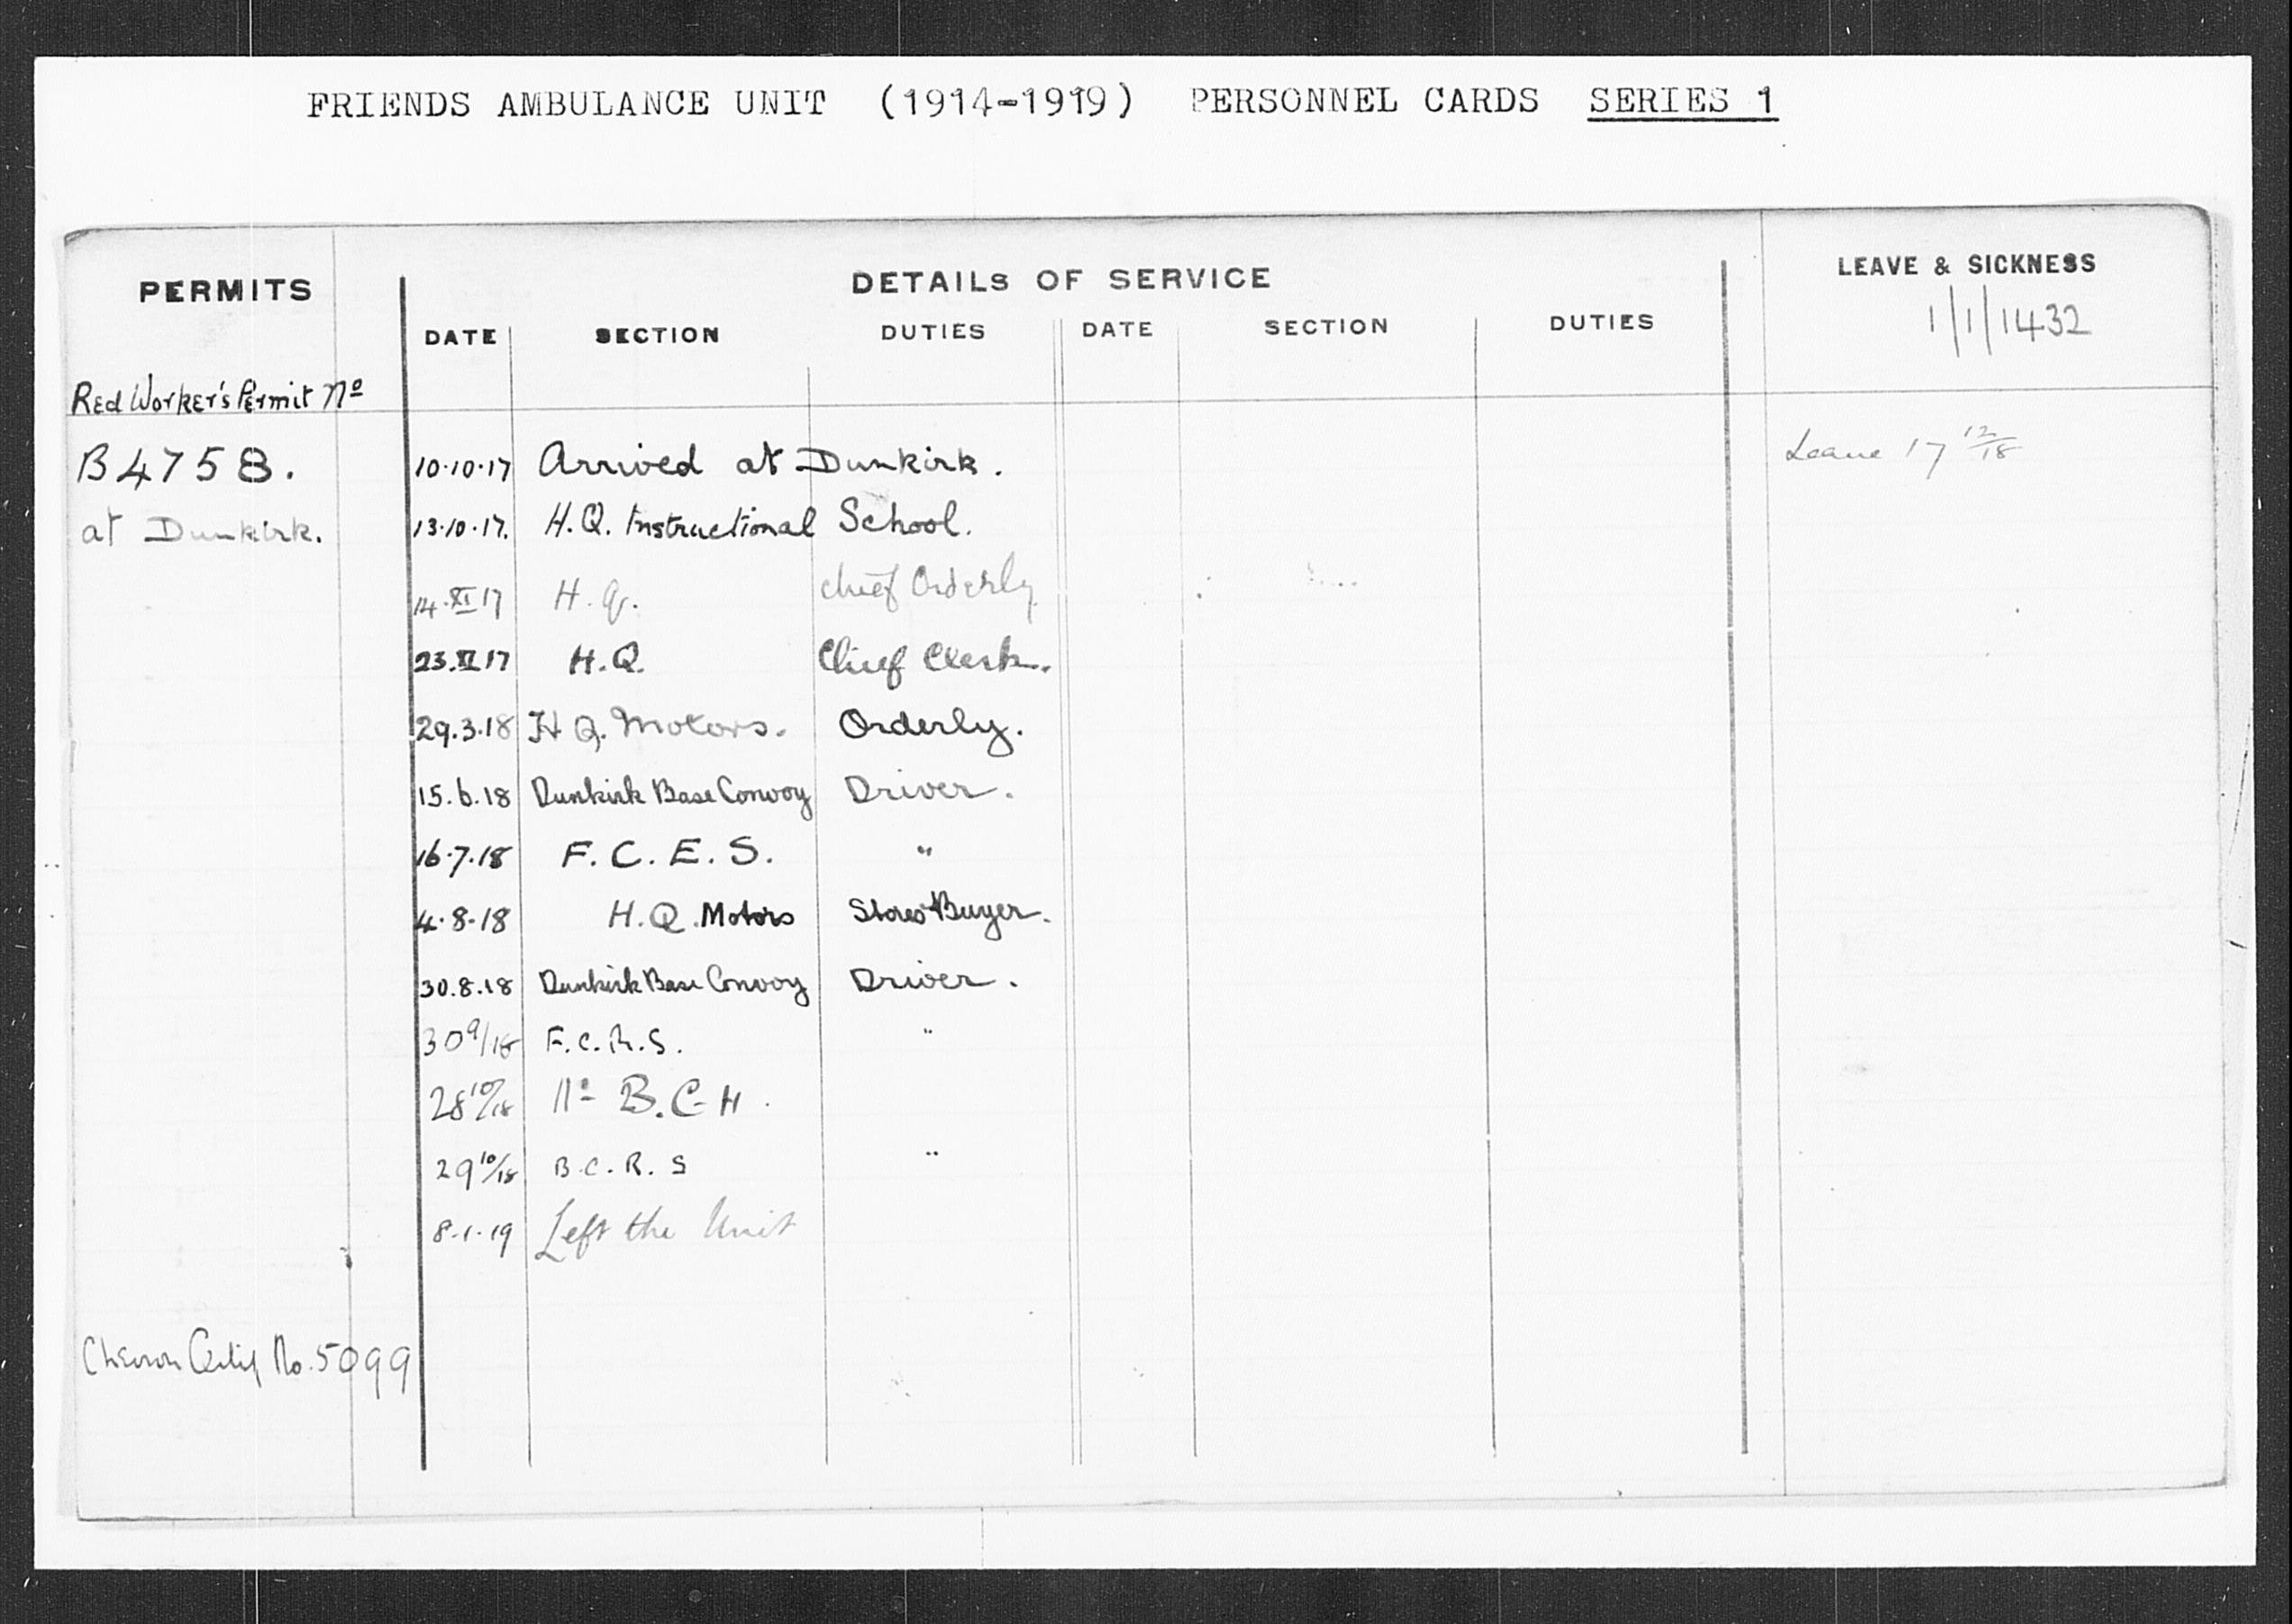 FRIENDS AMBULANCE UNIT (1914-1919) PERSONNEL CARDS SERIES 1
PERMITS
DETAILS OF SERVICE
LEAVE & SICKNESS
1/1/1432
DATE SECTION DUTIES DATE SECTION DUTIES
Red Worker's Permit No
B4758.
at Dunkirk.
Leave 17 12/18
10.10.17 Arrived at Dunkirk.
13.10.17. H.Q. Instructional School.
14.XI 17 H.Q. Chief Orderly
23.XI 17 H.Q. Chief Clerk.
29.3.18 H Q. Motors. Orderly.
15.6.18 Dunkirk Base Convoy Driver.
16.7.18 F.C.E.S. "
4.8.18 H.Q. Motors Stores Buyer.
30.8.18 Dunkirk Base Convoy Driver.
30 9/18 F.C.R.S. "
28 10/18 B.C.H.
29 10/18 B.C.R.S "
8.1.19 Left the Unit
Chevron Certif No. 5099